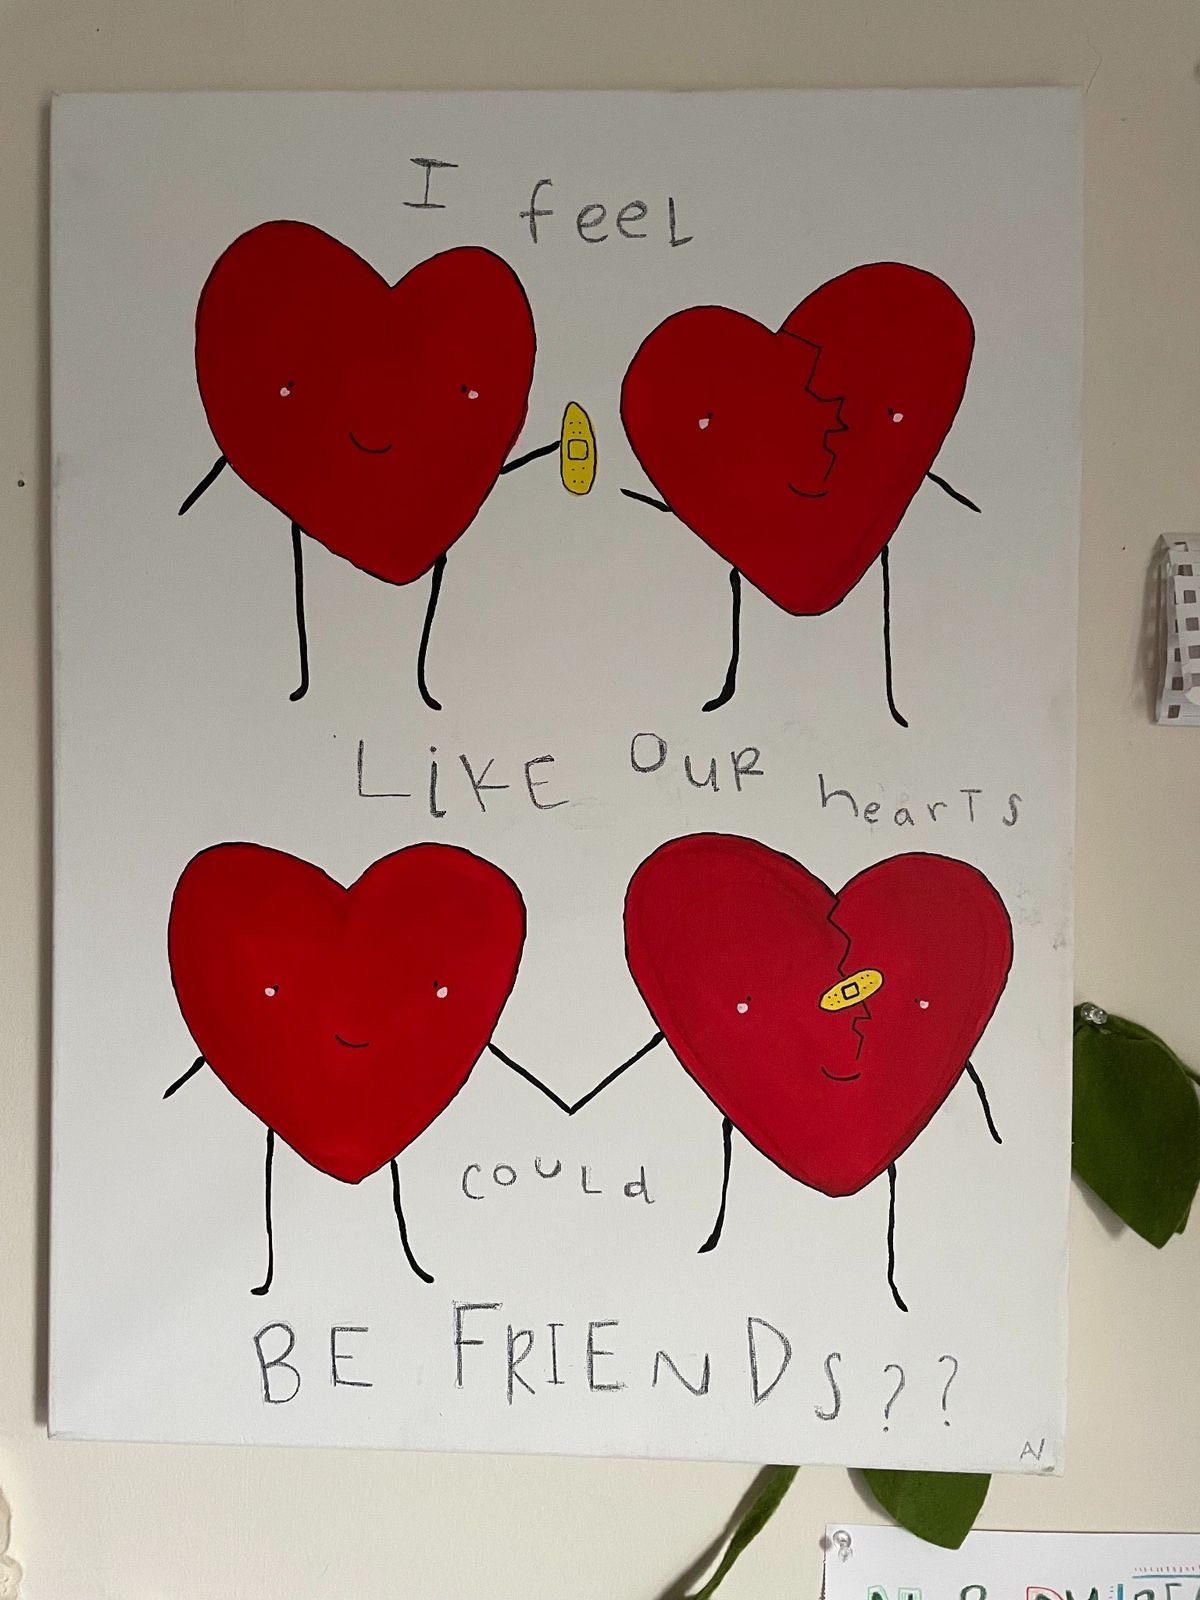 I feeL
LiKE OUR hearTS
COULd
BE FRIENDS??
AV